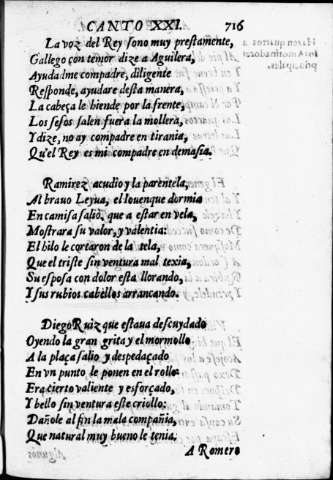 CANTO XXI. 716
La voz del Rey sono muy prestamente,
Gallego con temor dize a Aguilera,
Ayudadme compadre, diligente
Responde, ayudare desta manera,
La cabeça le hiende por la frente,
Los sesos salen fuera la mollera,
Y dize, no ay compadre en tirania,
Qu'el Rey es mi compadre en demasia.
Ramirez acudio y la parentela,
Al brauo Leyua, el iouen que dormia
En camisa salio, que a estar en vela,
Mostrara su valor, y valentia:
El hilo le cortaron de la tela,
Que el triste sin ventura mal texia,
Su esposa con dolor esta llorando,
Y sus rubios cabellos arrancando.
Diego Ruiz que estaua descuydado
Oyendo la gran grita y el mormollo
A la plaça salio y despedaçado
En vn punto le ponen en el rollo
Era cierto valiente y esforçado,
Y bello sin ventura este criollo:
Dañole al fin la mala compañia,
Que natural muy bueno le tenia.
A Romero